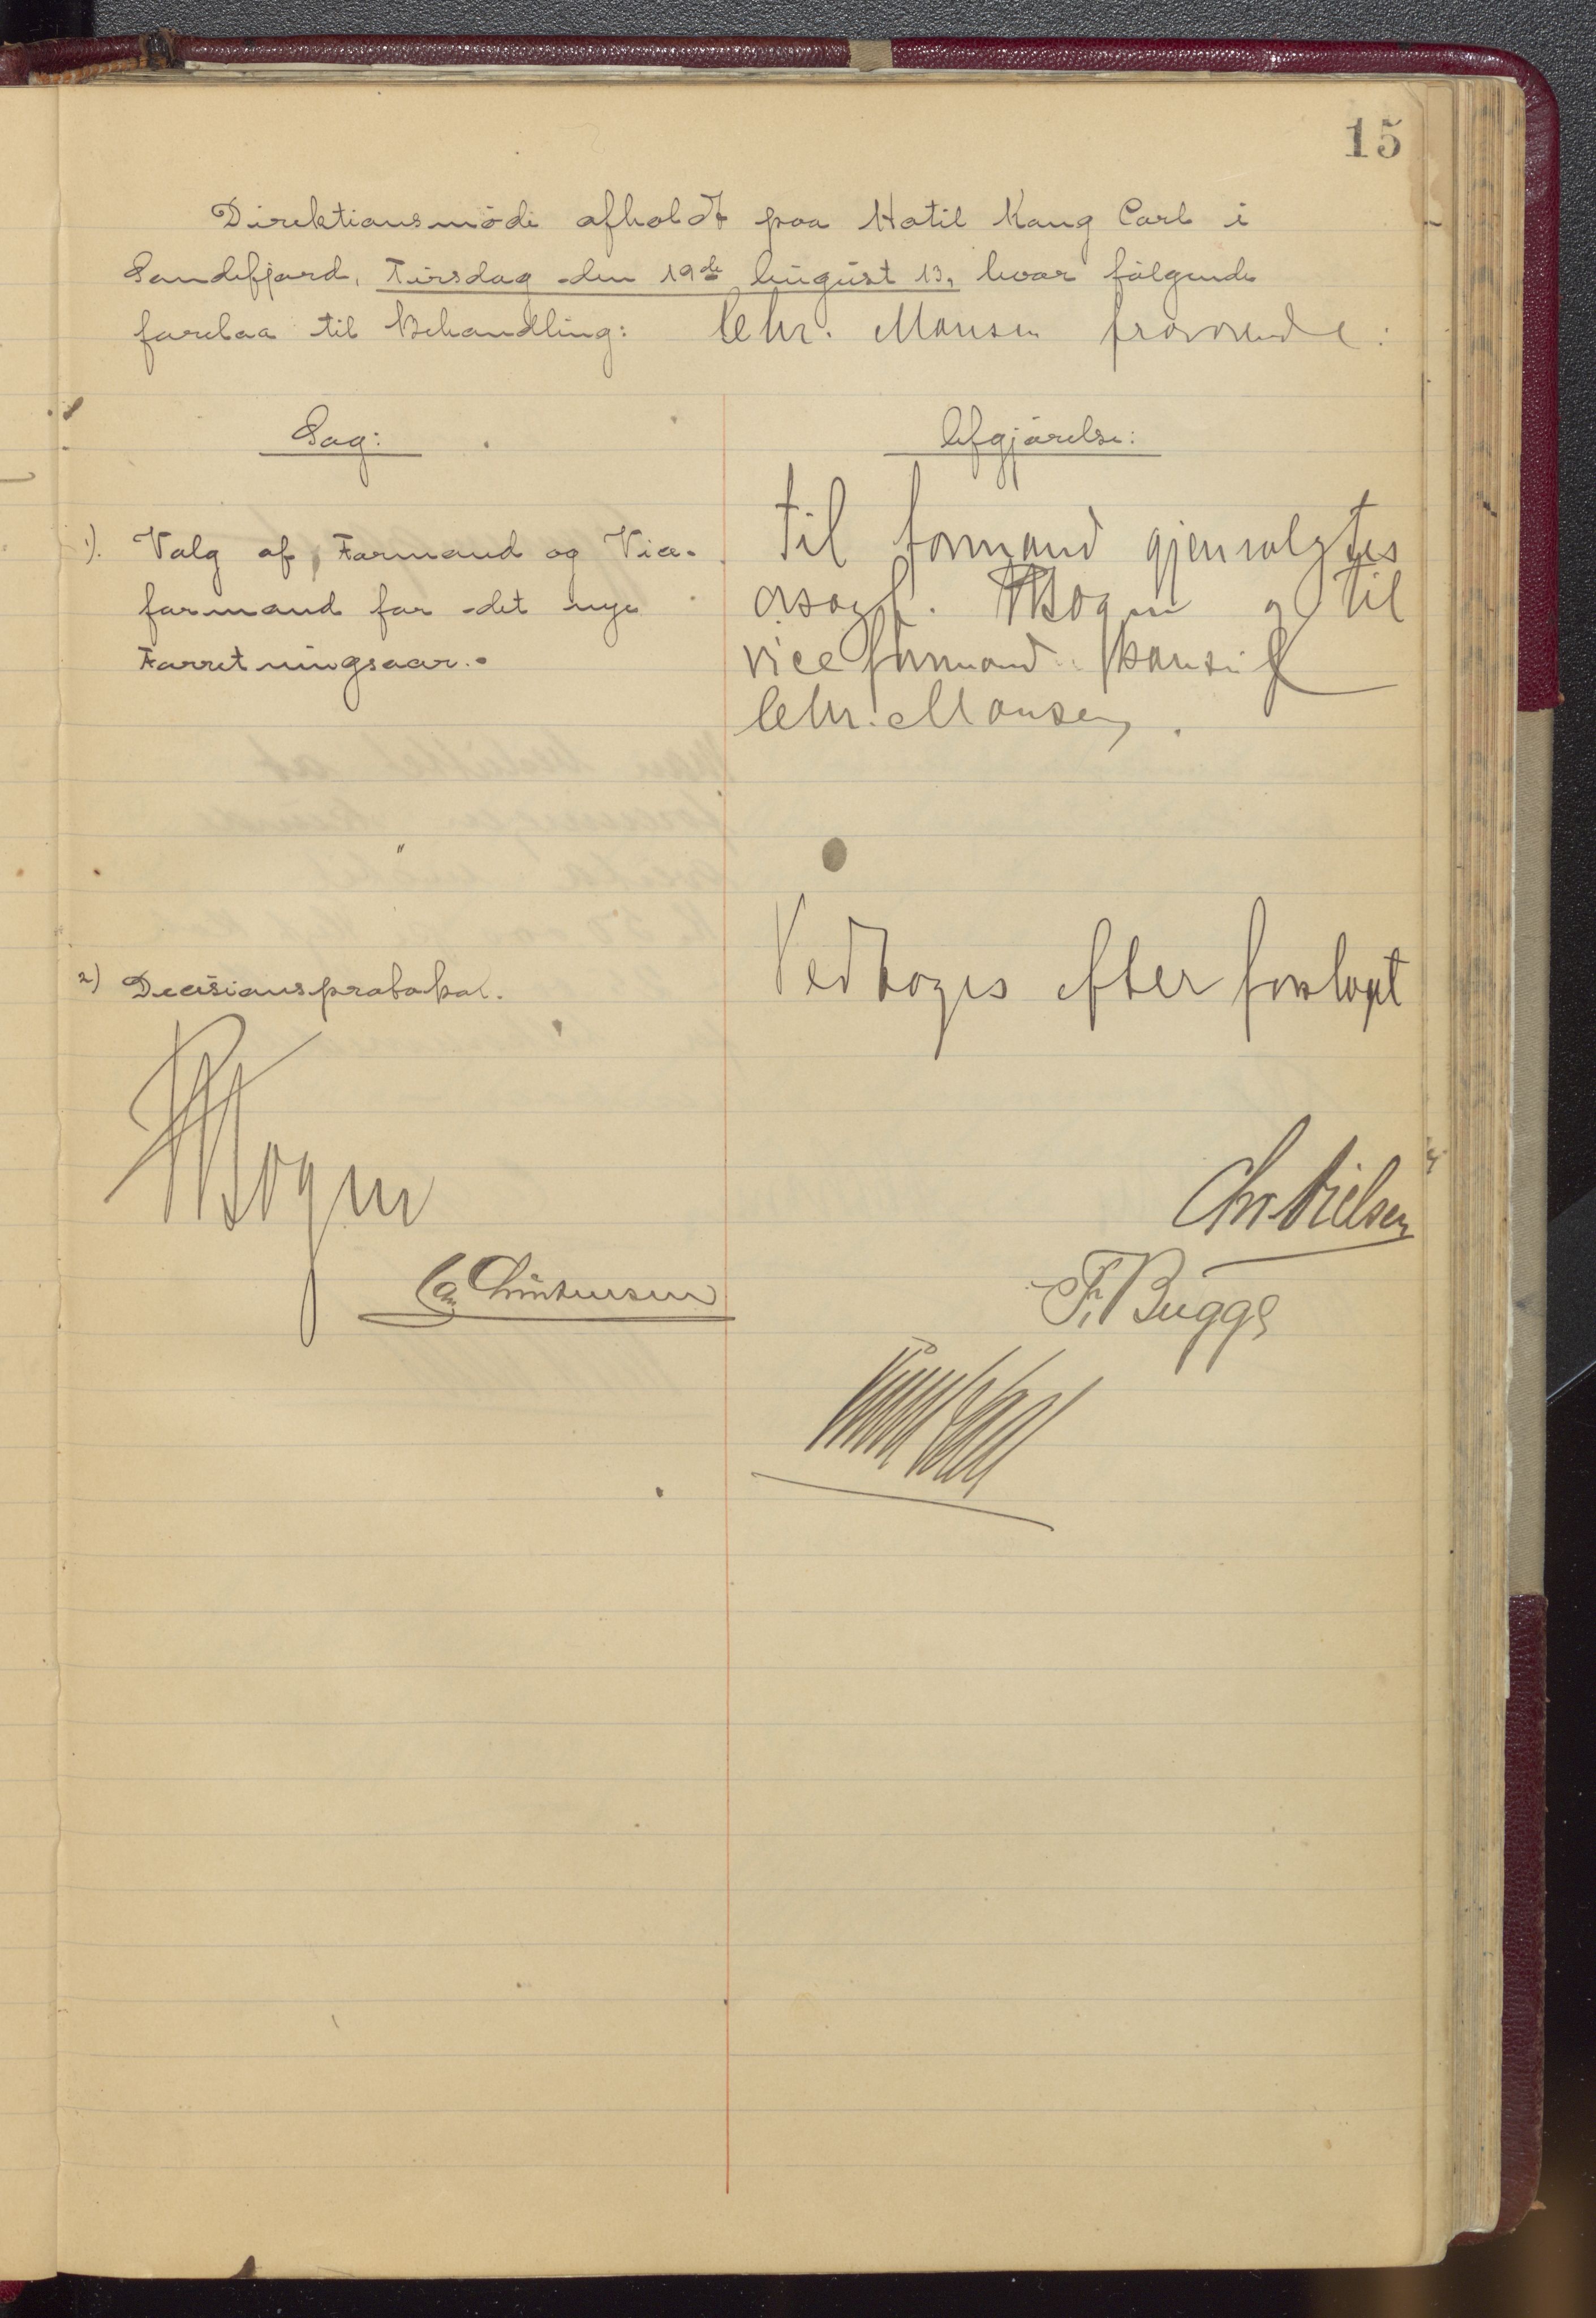 15
Direktionsmöde afholdt paa Hotel Kong Carl i
Sandefjord, Tirsdag den 19de August 13, hvor fölgende
forelaa til Behandling: Chr. Monsen fraværende:
Sag:
Afgjörelse:
1). Valg af Formand og Vice-
formand for det nye
Forretningsaar.
Til formand gjenvalgtes
P Bogen og til
viceformand
Chr. Monsen.
2) Decisionsprotokol.
Vedtoges efter forslaget
P Bogen
Chr. Nielsen
Chr Christensen
Fr. Bugge